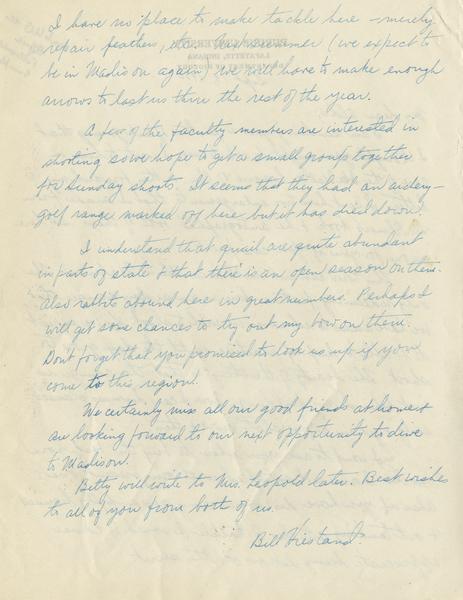 I have no place to make tackle here - merely
repair feathers, etc. Next summer (we expect to
be in Madison again) we will have to make enough
arrows to last us thru the rest of the year.
A few of the faculty members are interested in
shooting so we hope to get a small group together
for Sunday shoots. It seems that they had an archery-
golf range marked off here but it has died down.
I understand that quail are quite abundant
in parts of state & that there is an open season on them.
Also rabbits abound here in great numbers. Perhaps I
will get some chances to try out my bow on them.
Don't forget that you promised to look us up if you
come to this region!
We certainly miss all our good friends at home &
are looking forward to our next opportunity to drive
to Madison.
Betty will write to Mrs. Leopold later. Best wishes
to all of you from both of us.
Bill Hiestand.